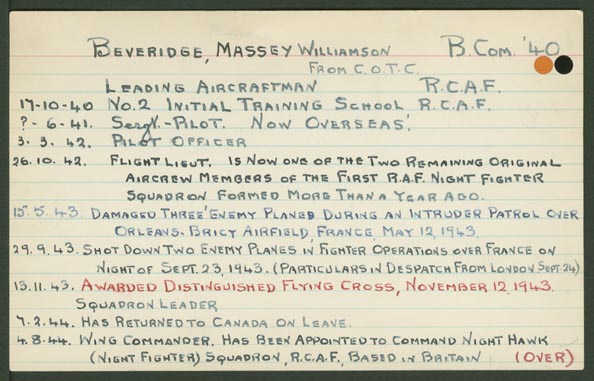 BEVERIDGE, MASSEY WILLIAMSON B.COM. '40
FROM C.O.T.C.
LEADING AIRCRAFTMAN R.C.A.F.
17-10-40 NO.2 INITIAL TRAINING SCHOOL R.C.A.F.
?-6-41. Sergt.-PILOT. NOW OVERSEAS.
3.3.42. PILOT OFFICER
26.10.42. FLIGHT LIEUT. IS NOW ONE OF THE TWO REMAINING ORIGINAL
AIRCREW MEMBERS OF THE FIRST R.A.F. NIGHT FIGHTER
SQUADRON FORMED MORE THAN A YEAR AGO.
15.5.43. DAMAGED THREE ENEMY PLANES DURING AN INTRUDER PATROL OVER
ORLEANS-BRICY AIRFIELD, FRANCE, MAY 12, 1943.
29.9.43. SHOT DOWN TWO ENEMY PLANES IN FIGHTER OPERATIONS OVER FRANCE ON
NIGHT OF SEPT. 23, 1943. (PARTICULARS IN DESPATCH FROM LONDON SEPT. 24)
13.11.43. AWARDED DISTINGUISHED FLYING CROSS, NOVEMBER 12, 1943.
SQUADRON LEADER
7.2.44. HAS RETURNED TO CANADA ON LEAVE.
4.8.44. WING COMMANDER. HAS BEEN APPOINTED TO COMMAND NIGHT HAWK
(NIGHT FIGHTER) SQUADRON, R.C.A.F., BASED IN BRITAIN (OVER)